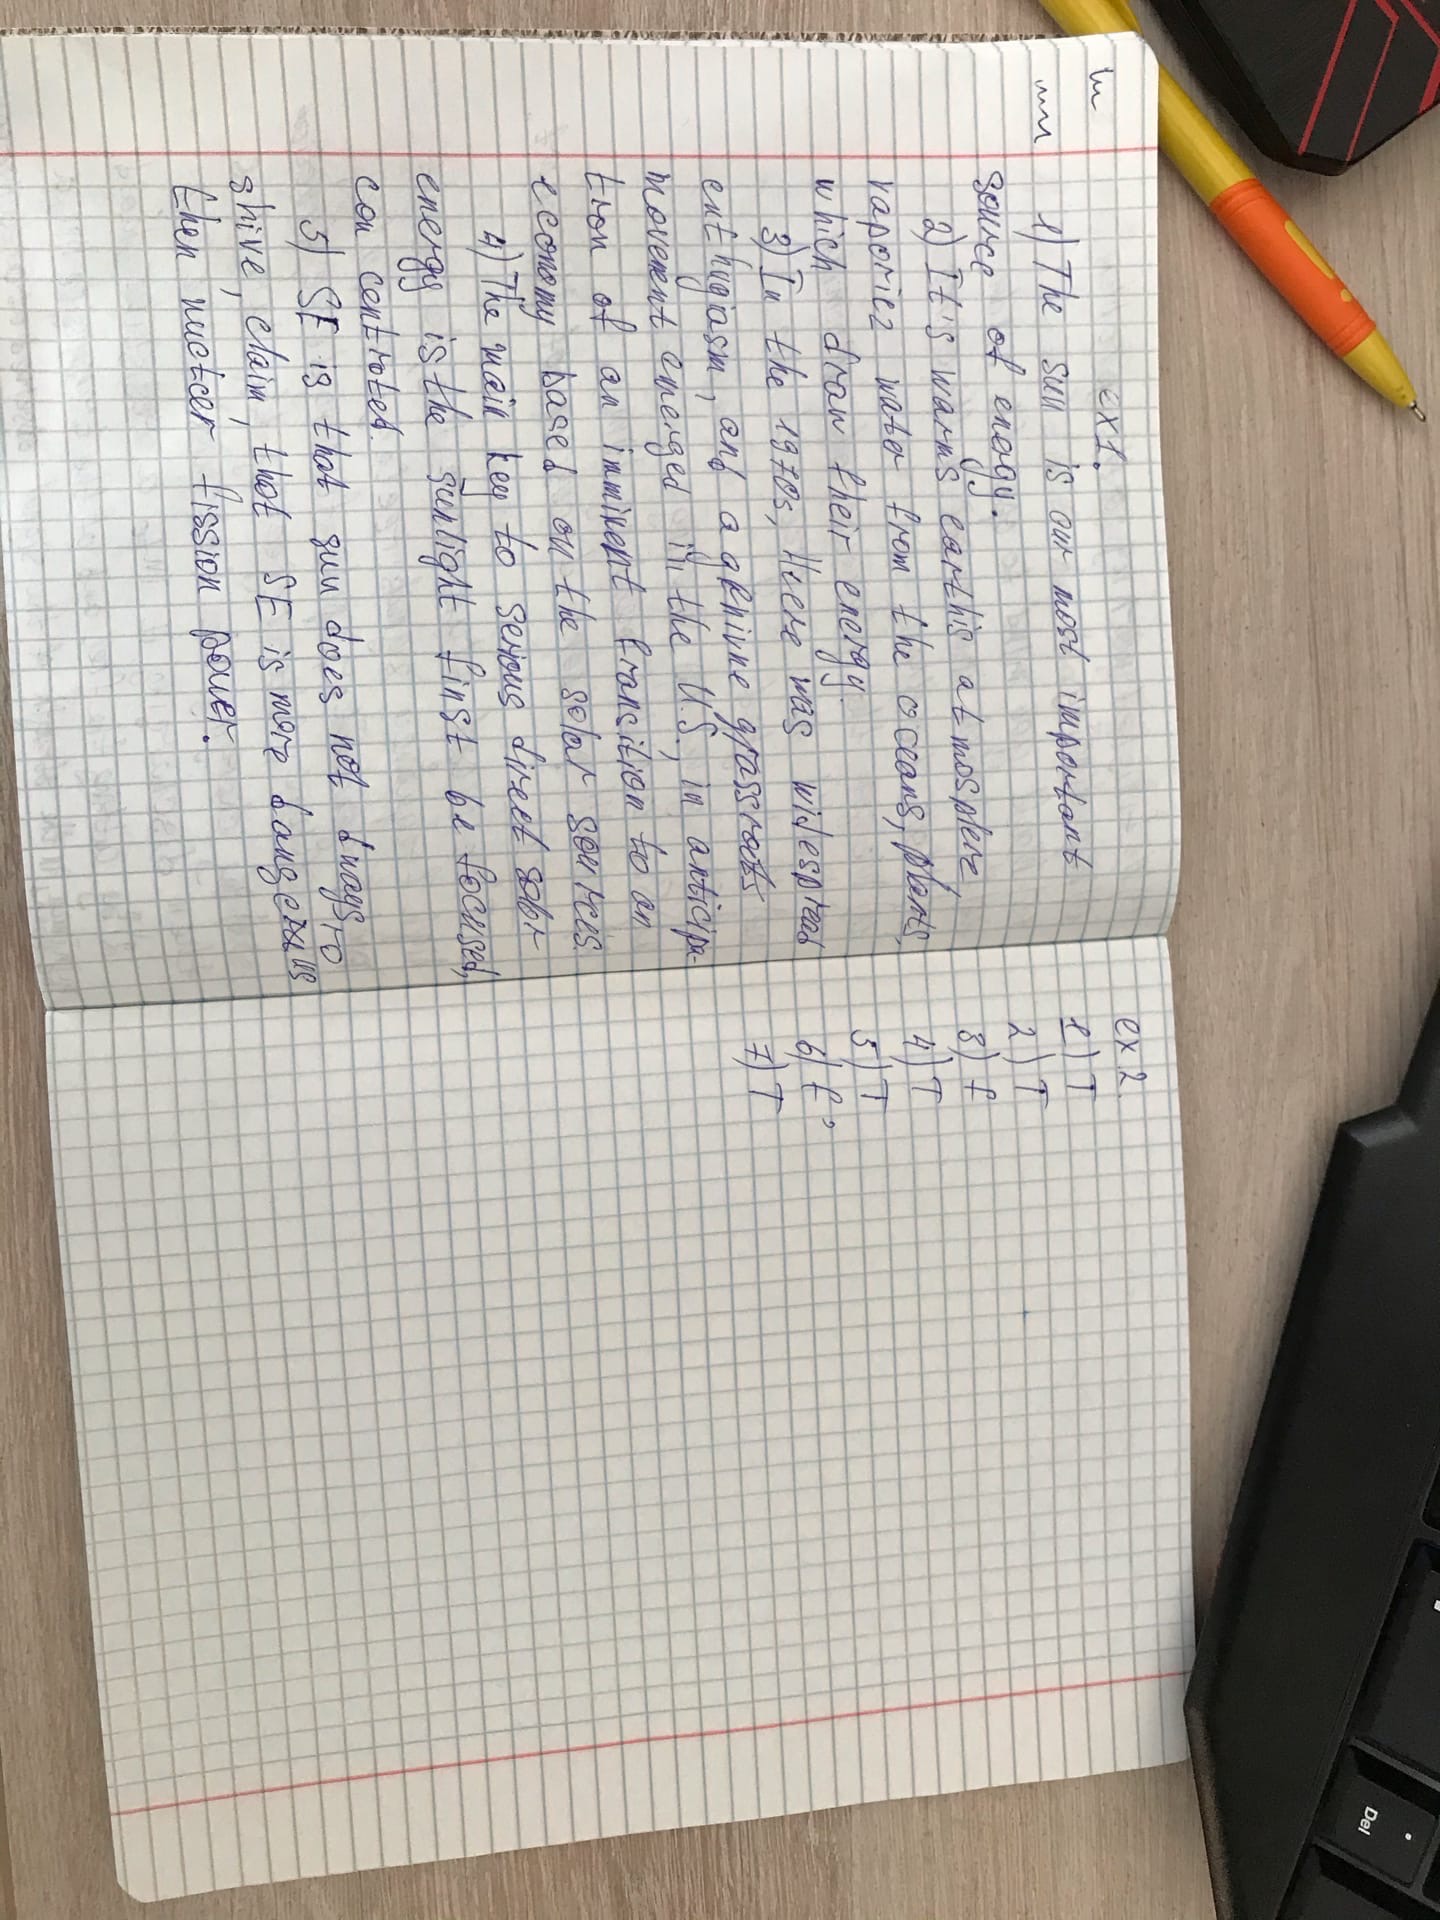 ex1.
1) The sun is our most important
source of enogy.
2) It's warms earthis atmosplere
vaporiez water from the oceans, plants,
which draw their energy.
3) In the 1970s, there was widespread
enthusiasm, and a grassrots
movement emerged in the U.S., in anticipa-
tion of an imminent transition to an
economy based on the solar sources.
4) The main key to serious direct solar
energy is the sunlight finst be focused,
con centroted.
5) SE is that sun does not always
shive, claim, that SE is more dangerous
then nuctear fission power.
ex 2.
1) T
2) T
3) f
4) T
5) T
6) f,
7) T
Del